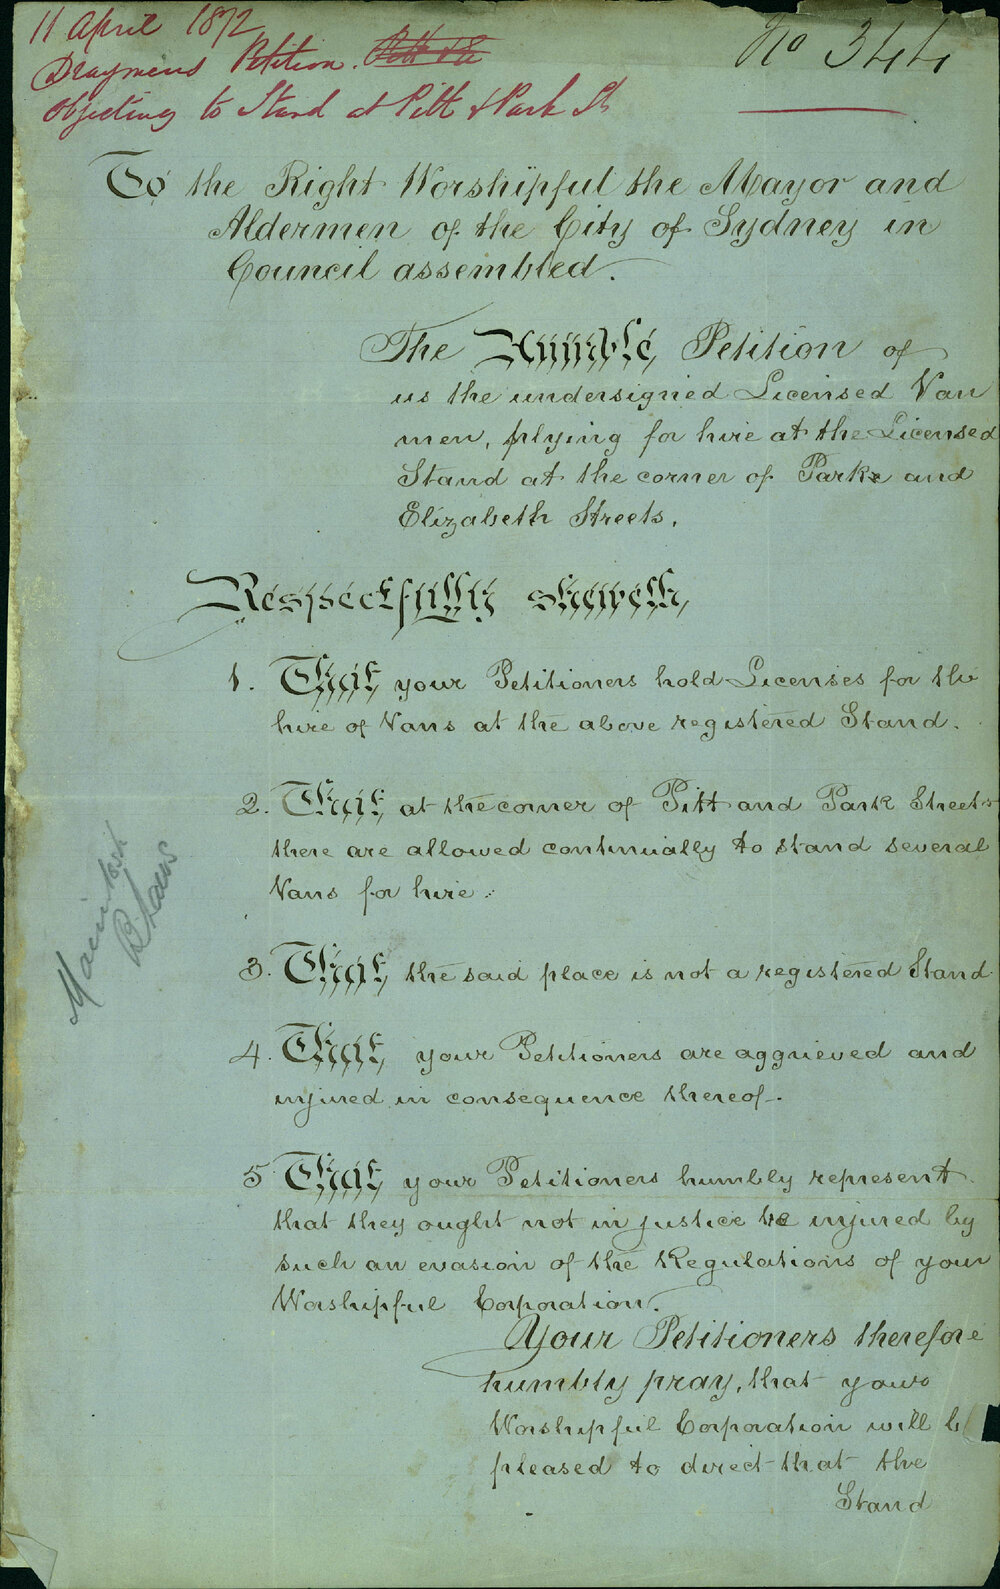 11 April 1872
Draymens Petition. Pitt & E
objecting to Stand at Pitt & Park St
No 344
To the Right Worshipful the Mayor and
Aldermen of the City of Sydney in
Council assembled.
The Humble Petition of
us the undersigned Licensed Van
men, plying for hire at the Licensed
Stand at the corner of Park and
Elizabeth Streets.
Respectfully sheweth,
1. That your Petitioners hold Licenses for the
hire of Vans at the above registered Stand.
2. That at the corner of Pitt and Park Streets
there are allowed continually to stand several
Vans for hire.
3. That the said place is not a registered Stand
4. That your Petitioners are aggrieved and
injured in consequence thereof.
5 That your Petitioners humbly represent
that they ought not in justice be injured by
such an evasion of the Regulations of your
Worshipful Corporation.
Your Petitioners therefore
humbly pray, that your
Worshipful Corporation will be
pleased to direct that the
Stand
Macintosh